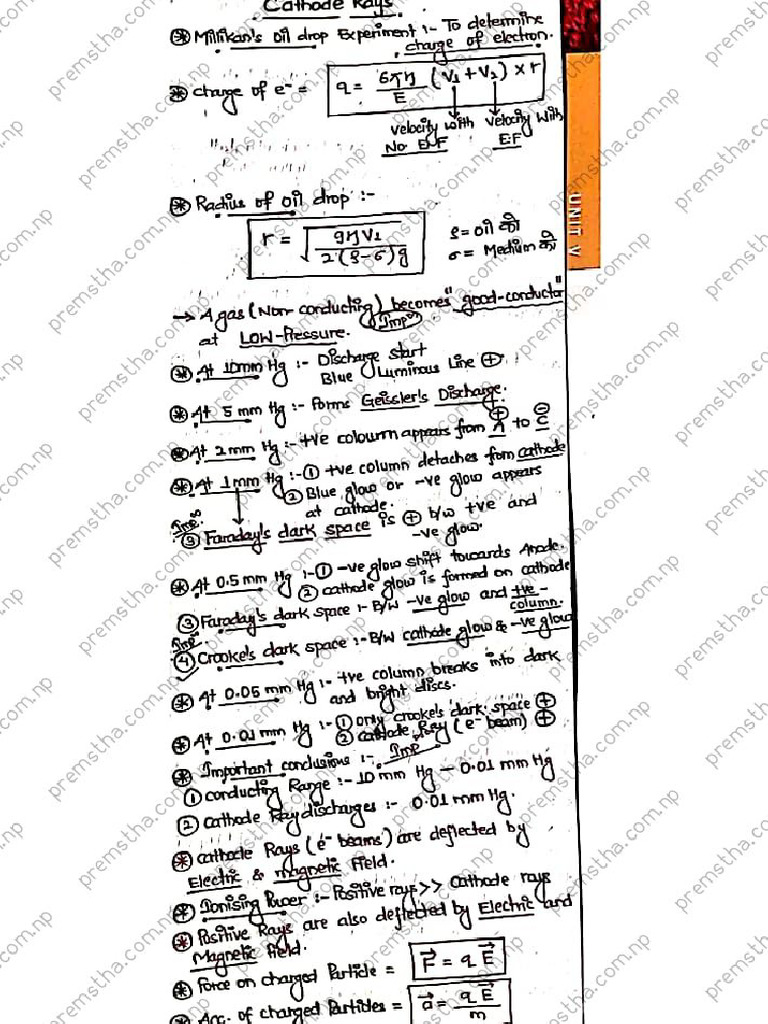 Cathode Rays
⊛ Millikan's oil drop Experiment :- To determine
charge of electron.
⊛ charge of e⁻ = q = 6πη/E (V₁ + V₂) × r
velocity with No EF
velocity with EF
⊛ Radius of oil drop :-
r = √(9ηV₁ / 2(ρ-σ)g)
ρ = oil को
σ = Medium को
→ A gas (Non-conducting) becomes "good-conductor"
at LOW-Pressure. Imp
⊛ At 10mm Hg :- Discharge start
Blue Luminous Line ⊕.
⊛ At 5 mm Hg :- Forms Geissler's Discharge.
⊛ At 2mm Hg :- +ve coloumn appears from A⊕ to C⊖
⊛ At 1mm Hg :- ① +ve column detaches from cathode
② Blue glow or -ve glow appears
at cathode.
Imp
③ Faraday's dark space is ⊕ b/w +ve and
-ve glow.
⊛ At 0.5 mm Hg :- ① -ve glow shift towards Anode.
② cathode glow is formed on cathode
③ Faraday's dark space :- B/W -ve glow and +ve-
column.
Imp
④ Crooke's dark space :- B/W cathode glow & -ve glow
⊛ At 0.05 mm Hg :- +ve column breaks into dark
and bright discs.
⊛ At 0.01 mm Hg :- ① only crooke's dark space ⊕
② cathode Ray (e⁻ beam) ⊕
⊛ Important conclusions :- Imp
① conducting Range :- 10 mm Hg – 0.01 mm Hg
② cathode Ray discharges :- 0.01 mm Hg.
⊛ cathode Rays (e⁻ beams) are deflected by
Electric & magnetic Field.
⊛ Ionising Power :- Positive rays >> Cathode rays
⊛ Positive Rays are also deflected by Electric and
Magnetic Field.
⊛ Force on charged Particle = F⃗ = qE⃗
⊛ Acc. of charged Particles = a⃗ = qE⃗/m
UNIT V
premstha.com.np